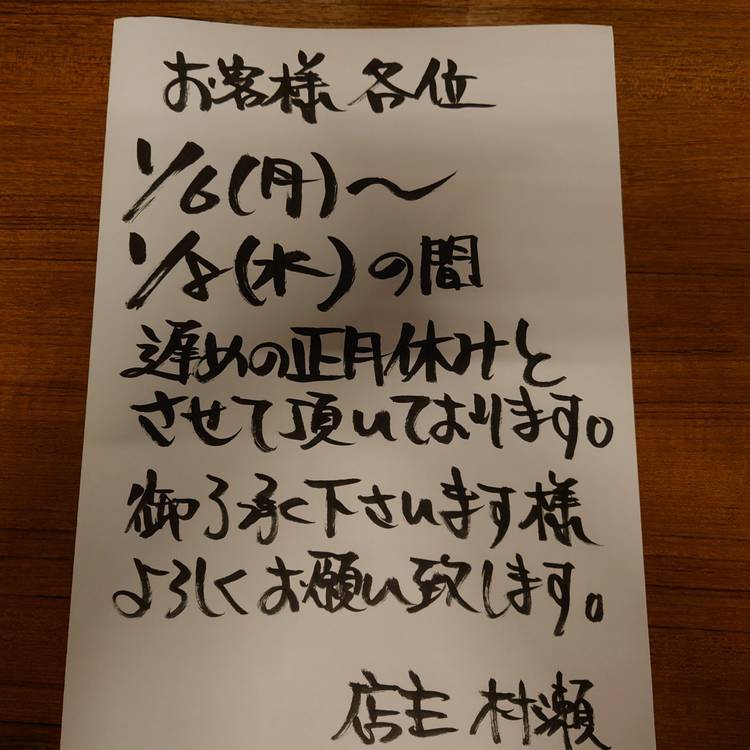 お客様 各位
1/6(月)〜
1/8(水)の間
遅めの正月休みと
させて頂いております。
御了承下さいます様
よろしくお願い致します。
店主 村瀬